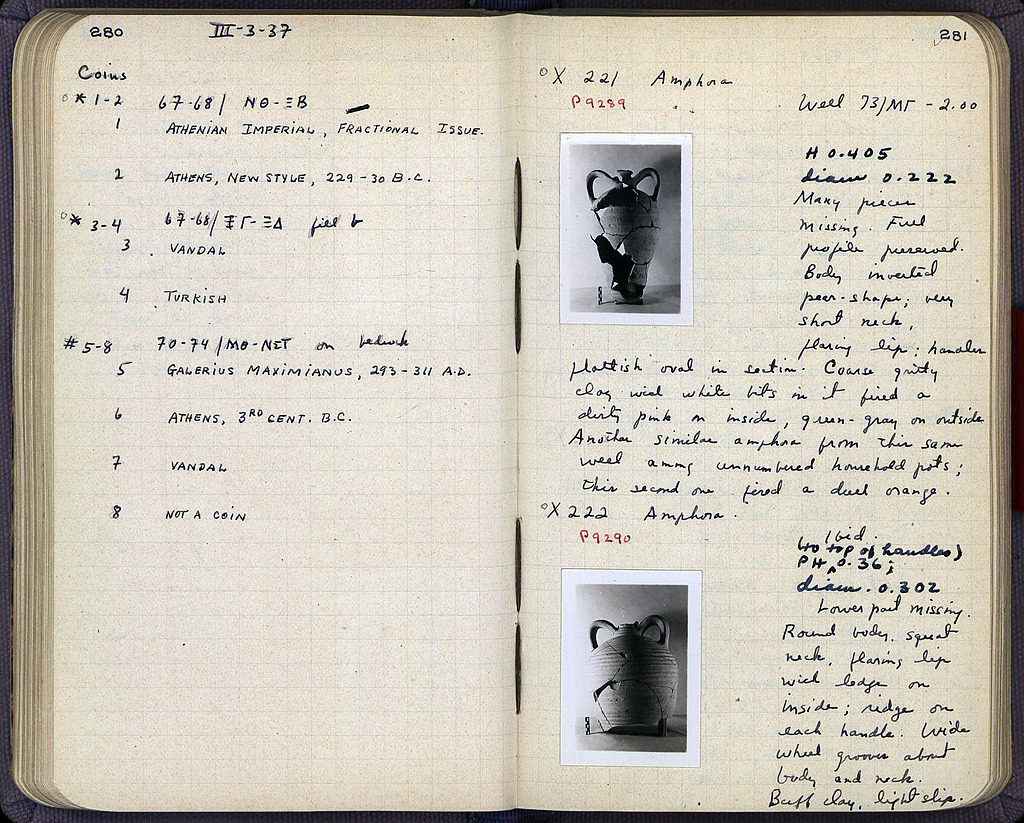 280
III-3-37
Coins
* 1-2 67-68/ ΝΘ-ΞΒ
1 ATHENIAN IMPERIAL, FRACTIONAL ISSUE.
2 ATHENS, NEW STYLE, 229-30 B.C.
* 3-4 67-68/ΞΓ-ΞΔ fill b
3 VANDAL
4 TURKISH
# 5-8 70-74/ΜΘ-ΝΣΤ on bedrock
5 GALERIUS MAXIMIANUS, 293-311 A.D.
6 ATHENS, 3RD CENT. B.C.
7 VANDAL
8 NOT A COIN
281
°X 221 Amphora
P9289
Well 73/ΜΓ - 2.00
H 0.405
diam 0.222
Many pieces
missing. Full
profile preserved.
Body inverted
pear-shape; very
short neck,
flaring lip; handles
flattish oval in section. Coarse gritty
clay with white bits in it fired a
dirty pink on inside, green-gray on outside
Another similar amphora from this same
well among unnumbered household pots;
this second one fired a dull orange.
°X 222 Amphora.
P9290
Ibid.
(to top of handles)
PH 0.36;
diam. 0.302
Lower part missing.
Round body, squat
neck, flaring lip
with ledge on
inside; ridge on
each handle. Wide
wheel grooves about
body and neck.
Buff clay, light slip.